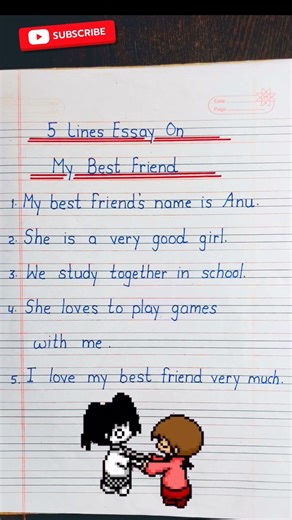 SUBSCRIBE
Date
Page
5 Lines Essay On
My Best Friend
1. My best friend's name is Anu.
2. She is a very good girl.
3. We study together in school.
4. She loves to play games
with me.
5. I love my best friend very much.